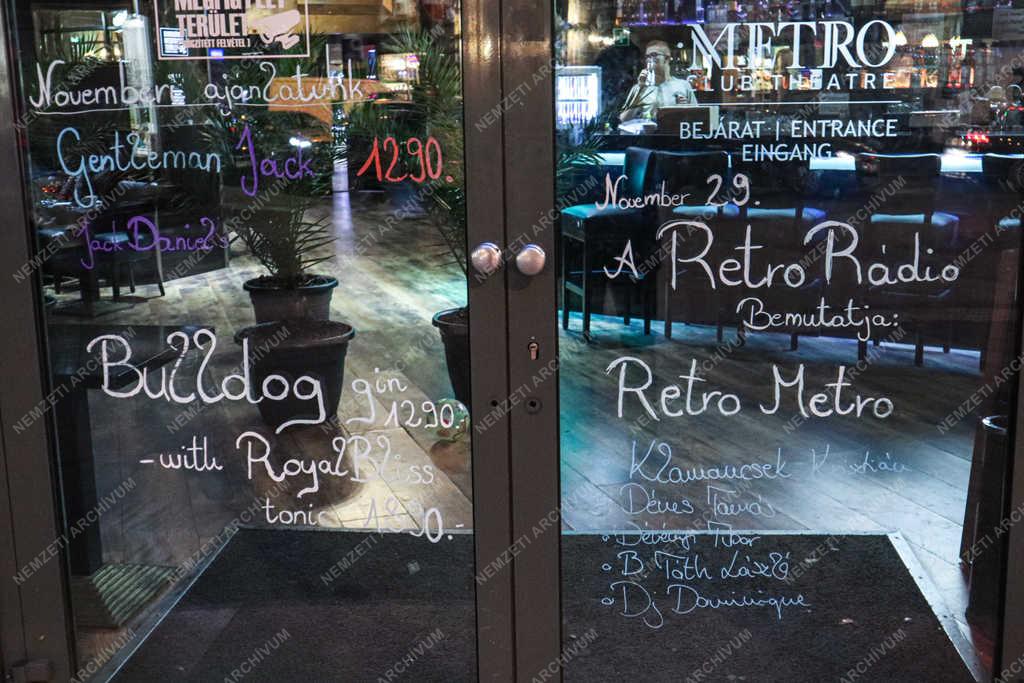 MEGFIGYELT
TERÜLET
(RÖGZÍTETT FELVÉTEL)
Novemberi ajánlatunk
Gentleman Jack 1290.-
Jack Daniel's
Bulldog gin
1290.-
- with Royal Bliss
tonic 1890.-
METRO
CLUB THEATRE
BEJÁRAT | ENTRANCE
EINGANG
November 29.
A Retro Rádio
Bemutatja:
Retro Metro
Klamancsek Krisztián
Dénes Tamás
Dévényi Tibor
B. Tóth László
Dj Dominique
NEMZETI ARCHÍVUM